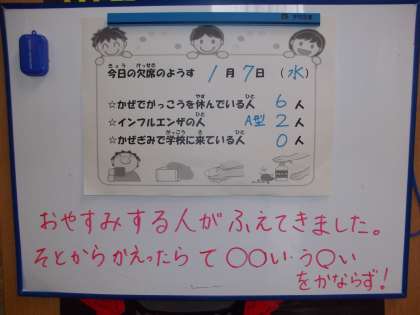 今日の欠席のようす 1月7日(水)
☆かぜでがっこうを休んでいる人 6人
☆インフルエンザの人 A型 2人
☆かぜぎみで学校に来ている人 0人
おやすみする人がふえてきました。
そとからかえったらて○○い・う○い
をかならず!